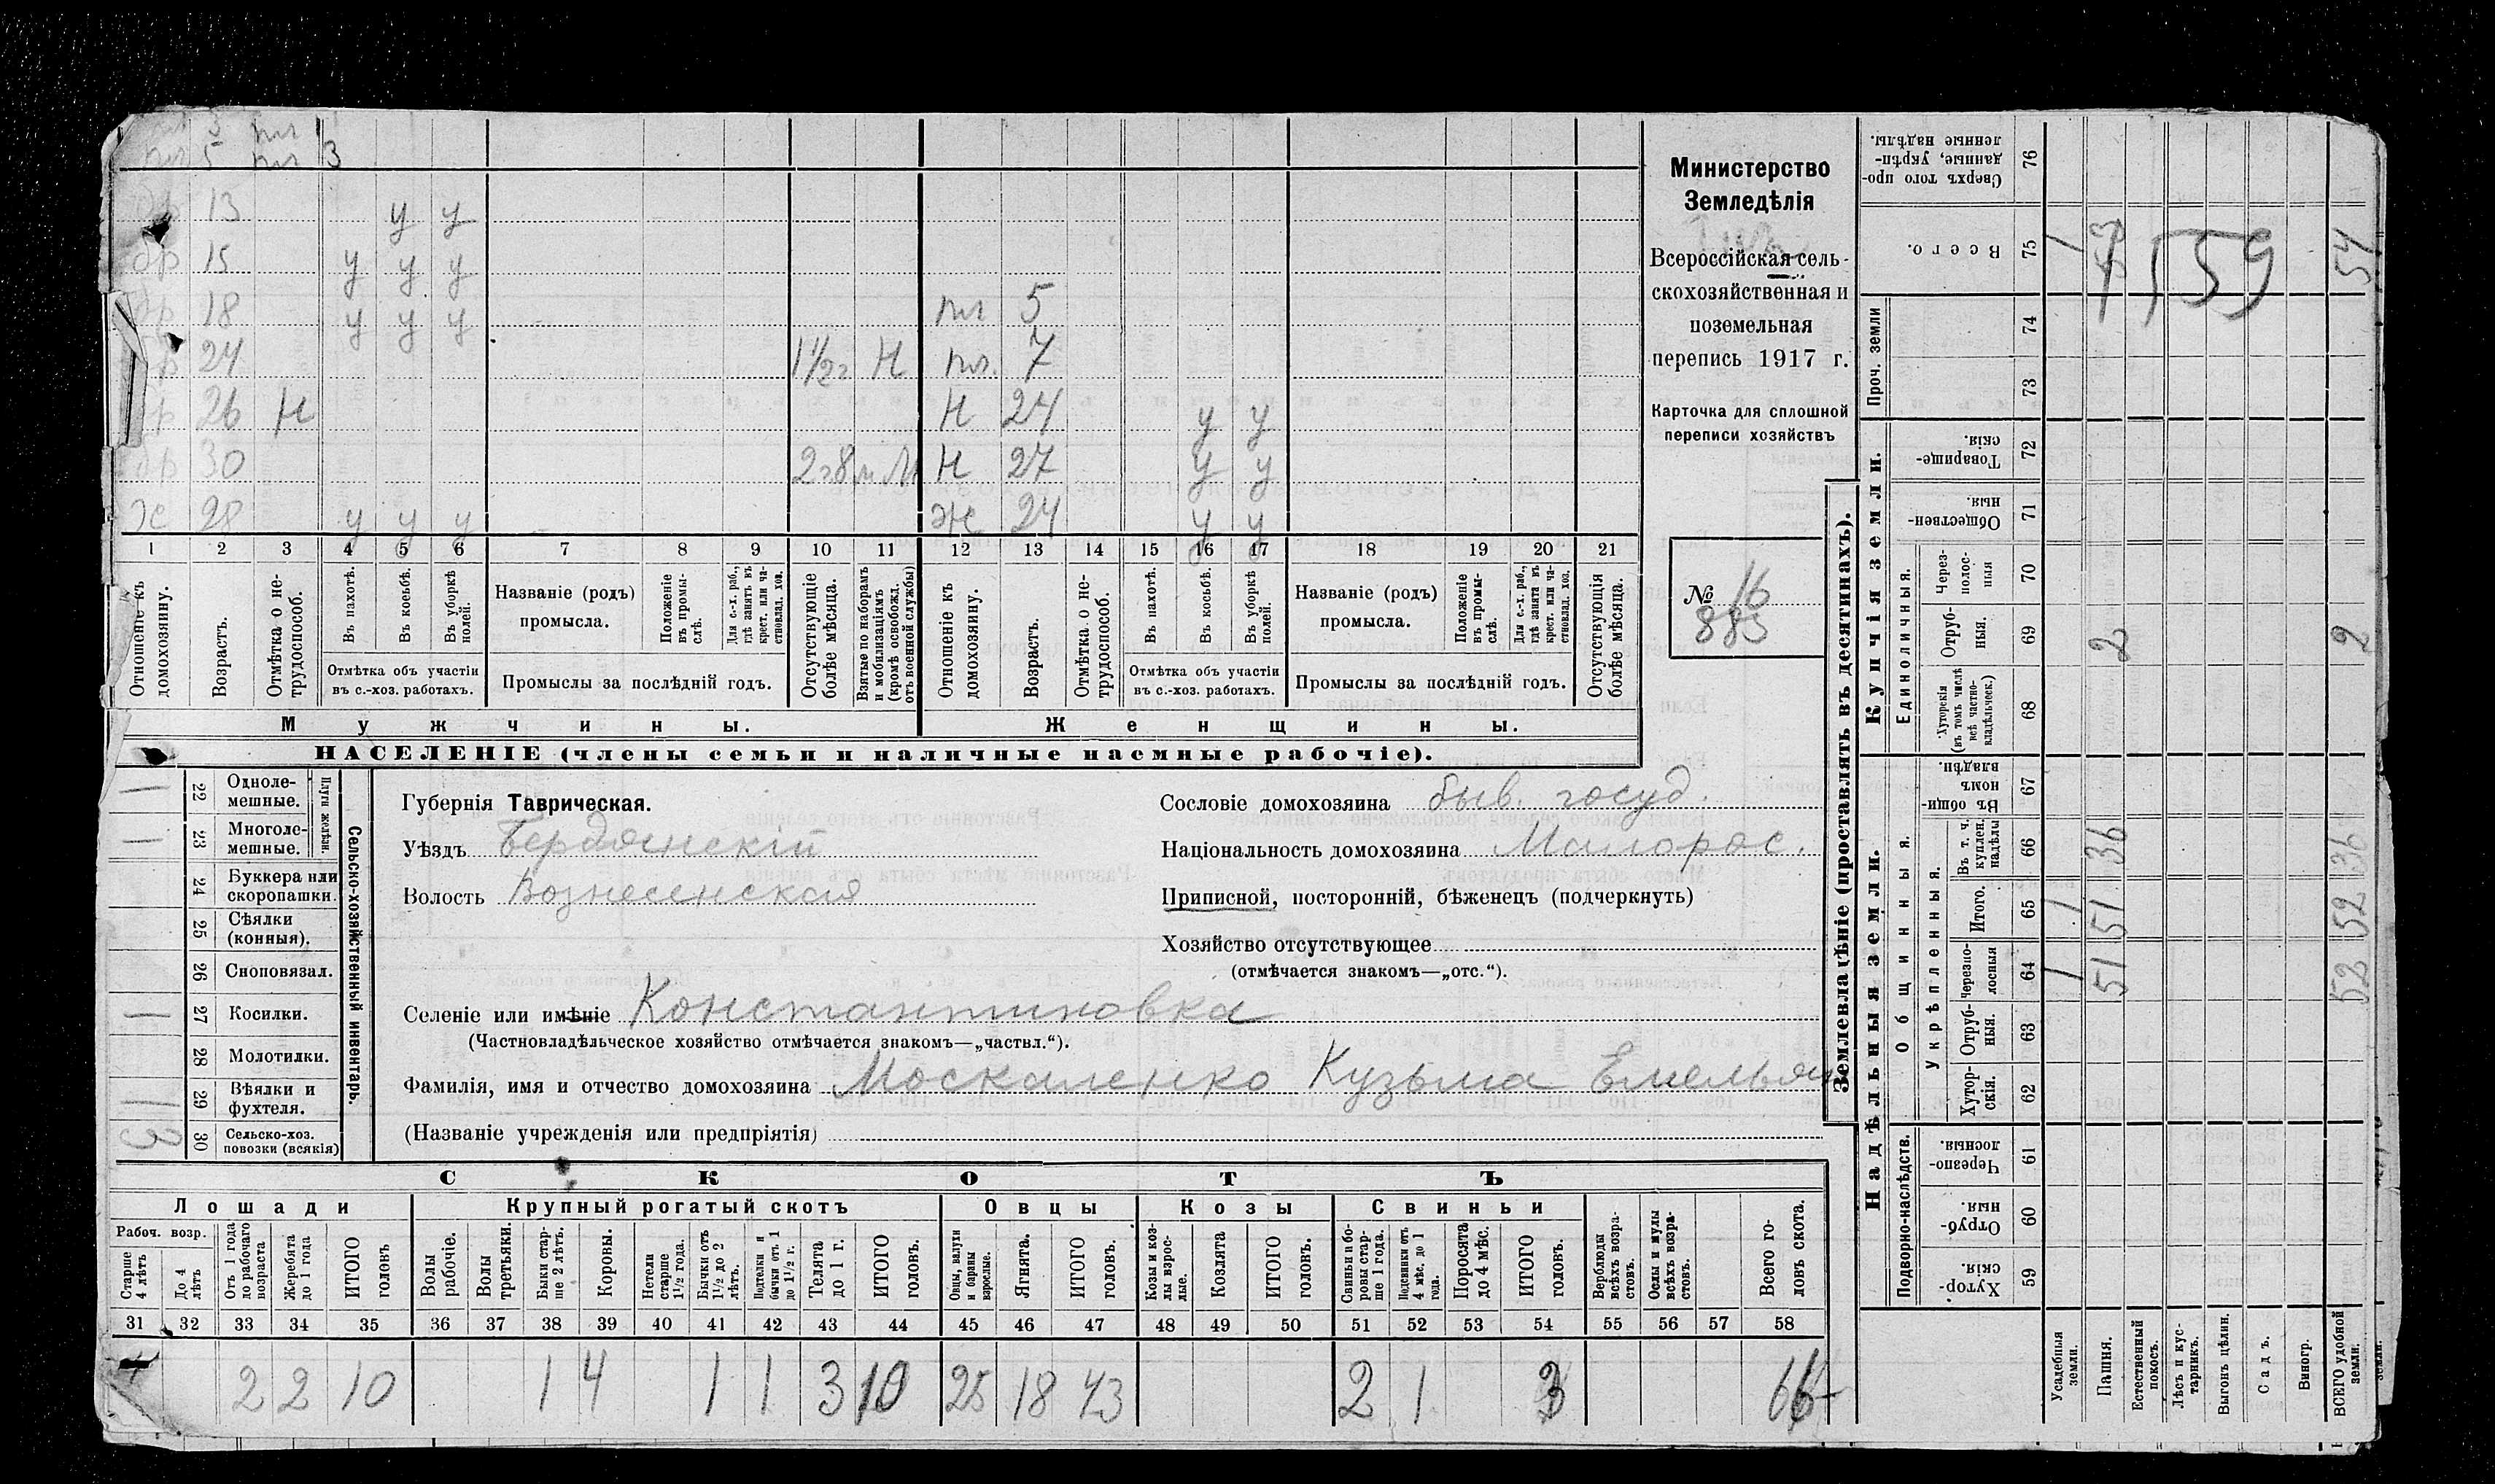 3 пл
пл 5 пл 3
бр 13 у у
бр 15 у у у
бр 18 у у у пл 5
бр 24 1½ г Н пл. 7
бр 26 Н Н 24 у у
бр 30 2 г 8 м М Н 27 у у
Ж 28 у у у Ж 24 у у
1 2 3 4 5 6 7 8 9 10 11 12 13 14 15 16 17 18 19 20 21
Отношеніе къ домохозяину.
Возрастъ.
Отмѣтка о нетрудоспособ.
Въ пахотѣ.
Въ косьбѣ.
Въ уборкѣ полей.
Отмѣтка объ участіи
въ с.-хоз. работахъ.
Названіе (родъ)
промысла.
Положеніе въ промыслѣ.
Для с.-х. раб., гдѣ занятъ въ крест. или частновлад. хоз.
Промыслы за послѣдній годъ.
Отсутствующіе болѣе мѣсяца.
Взятые по наборамъ и мобилизаціямъ (кромѣ освобожд. отъ военной службы)
Отношеніе къ домохозяину.
Возрастъ.
Отмѣтка о нетрудоспособ.
Въ пахотѣ.
Въ косьбѣ.
Въ уборкѣ полей.
Отмѣтка объ участіи
въ с.-хоз. работахъ.
Названіе (родъ)
промысла.
Положеніе въ промыслѣ.
Для с.-х. раб., гдѣ занята въ крест. или частновлад. хоз.
Промыслы за послѣдній годъ.
Отсутствующія болѣе мѣсяца.
Мужчины.
Женщины.
НАСЕЛЕНІЕ (члены семьи и наличные наемные рабочіе).
Министерство
Земледѣлія
Всероссійская сель-
скохозяйственная и
поземельная
перепись 1917 г.
Карточка для сплошной
переписи хозяйствъ
№ 16
885
Сельско-хозяйственный инвентарь.
Плуги желѣзн.
1 22 Одноле-
мешные.
1 23 Многоле-
мешные.
24 Буккера или
скоропашки.
25 Сѣялки
(конныя).
26 Сноповязал.
1 27 Косилки.
28 Молотилки.
1 29 Вѣялки и
фухтеля.
3 30 Сельско-хоз.
повозки (всякія)
Губернія Таврическая.
Уѣздъ Бердянскій
Волость Вознесенская
Сословіе домохозяина быв. госуд.
Національность домохозяина Малорос.
Приписной, посторонній, бѣженецъ (подчеркнуть)
Хозяйство отсутствующее
(отмѣчается знакомъ—„отс.“).
Селеніе или имѣніе Константиновка
(Частновладѣльческое хозяйство отмѣчается знакомъ—„частвл.“).
Фамилія, имя и отчество домохозяина Москаленко Кузьма Емельян
(Названіе учрежденія или предпріятія)
СКОТЪ
Лошади
Крупный рогатый скотъ
Овцы
Козы
Свиньи
Рабоч. возр.
Старше 4 лѣтъ
До 4 лѣтъ
Отъ 1 года до рабочаго возраста
Жеребята до 1 года
ИТОГО головъ
Волы рабочіе.
Волы третьяки.
Быки старше 2 лѣтъ.
Коровы.
Нетели старше 1½ года.
Бычки отъ 1½ до 2 лѣтъ.
Подтелки и бычки отъ 1 до 1½ г.
Телята до 1 г.
ИТОГО головъ.
Овцы, валухи и бараны взрослые.
Ягнята.
ИТОГО головъ.
Козы и козлы взрослые.
Козлята
ИТОГО головъ.
Свиньи и боровы старше 1 года.
Подсвинки отъ 4 мѣс. до 1 года.
Поросята до 4 мѣс.
ИТОГО головъ.
Верблюды всѣхъ возрастовъ.
Ослы и мулы всѣхъ возрастовъ.
Всего головъ скота.
31 32 33 34 35 36 37 38 39 40 41 42 43 44 45 46 47 48 49 50 51 52 53 54 55 56 57 58
2 2 10 1 4 1 1 3 10 25 18 43 2 1 3 66
Землевладѣніе (проставлять въ десятинахъ).
Надѣльныя земли.
Купчія земли.
Проч. земли
Подворно-наслѣдств.
Общинныя.
Укрѣпленныя.
Единоличныя.
Хуторскія. 59
Отрубныя. 60
Черезполосныя. 61
Хуторскія. 62
Отрубныя. 63
Черезполосныя 64 1 51 52
Итого. 65 1 51 52
Въ т. ч. куплен. надѣлы 66 36 36
Въ общинномъ владѣн. 67
Хуторскія (въ томъ числѣ всѣ частновладѣльческ.) 68
Отрубныя. 69 2 2
Черезполосныя 70
Общественныя. 71
Товарищескія. 72
73
74
Всего. 75 1 53 54
159
Сверхъ того проданные, укрѣпленные надѣлы. 76
Усадебныя земли.
Пашня.
Естественный покосъ.
Лѣсъ и кустарникъ.
Выгонъ цѣлин.
Садъ.
Виногр.
ВСЕГО удобной земли.